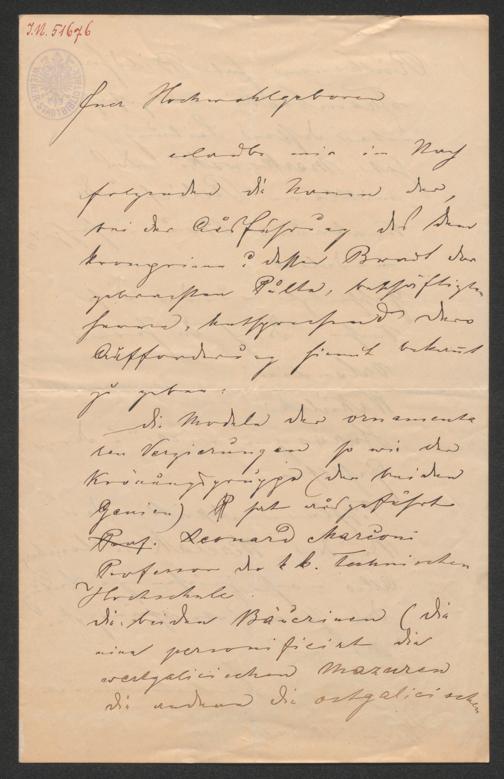 J.N. 51676
Euer Hochwohlgeboren
erlaube mir im Nach
folgenden die Namen der,
bei der Ausführung des dem
Kronprinz u dessen Braut dar
gebrachten Pulte, beschäftigten
Herrn, entsprechend dero
Aufforderung hiemit bekannt
zu geben:
die Modele der ornamenta
len Verzierungen so wie der
Krönungsgruppe (der beiden
Genien) hat ausgeführt
Prof. Leonard Marconi
Professor der k k. Technischen
Hochschule
die beiden Bäuerinen (die
eine personificirt die
westgalicischen Mazuren
die andere die ostgalicischen